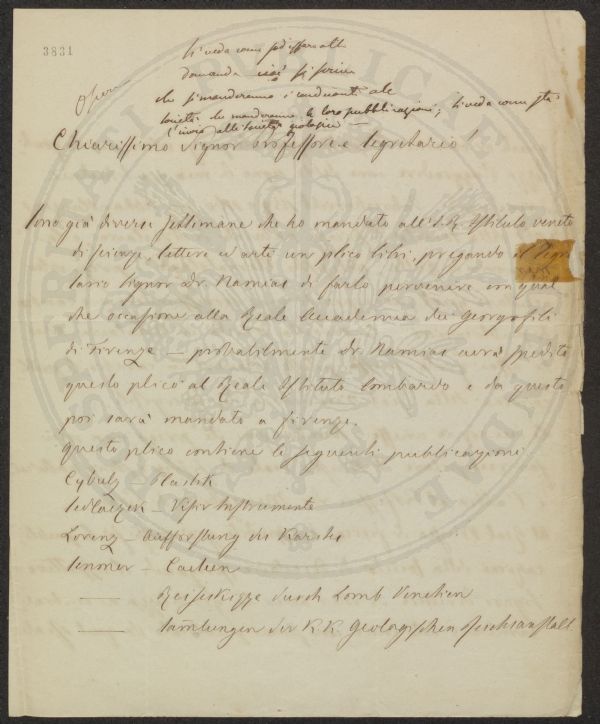 3831
si veda come
domanda cioè si scrive
che si manderanno i ale
società che manderanno le loro pubblicazioni; si veda come sta
l'invio alla Società geologica —
Chiarissimo Signor Professore e Segretario!
Sono già diverse settimane che ho mandato all'I.R. Istituto veneto
di scienze, lettere ed arti un plico libri, pregando il Segre
tario Signor Dr. Namias di farlo pervenire con qual
che occasione alla Reale Accademia dei Georgofili
di Firenze — probabilmente Dr. Namias avrà spedito
questo plico al Reale Istituto lombardo e da questo
poi sarà mandato a Firenze.
questo plico contiene le seguenti pubblicazioni
Cybulz — Plastik
Sedlaczek — Visir Instrumente
Lorenz — Aufforstung des Karstes
Senoner —
— Reiseskizze durch Lomb Venetien
— Sammlungen der K.K. Geologischen Reichsanstalt